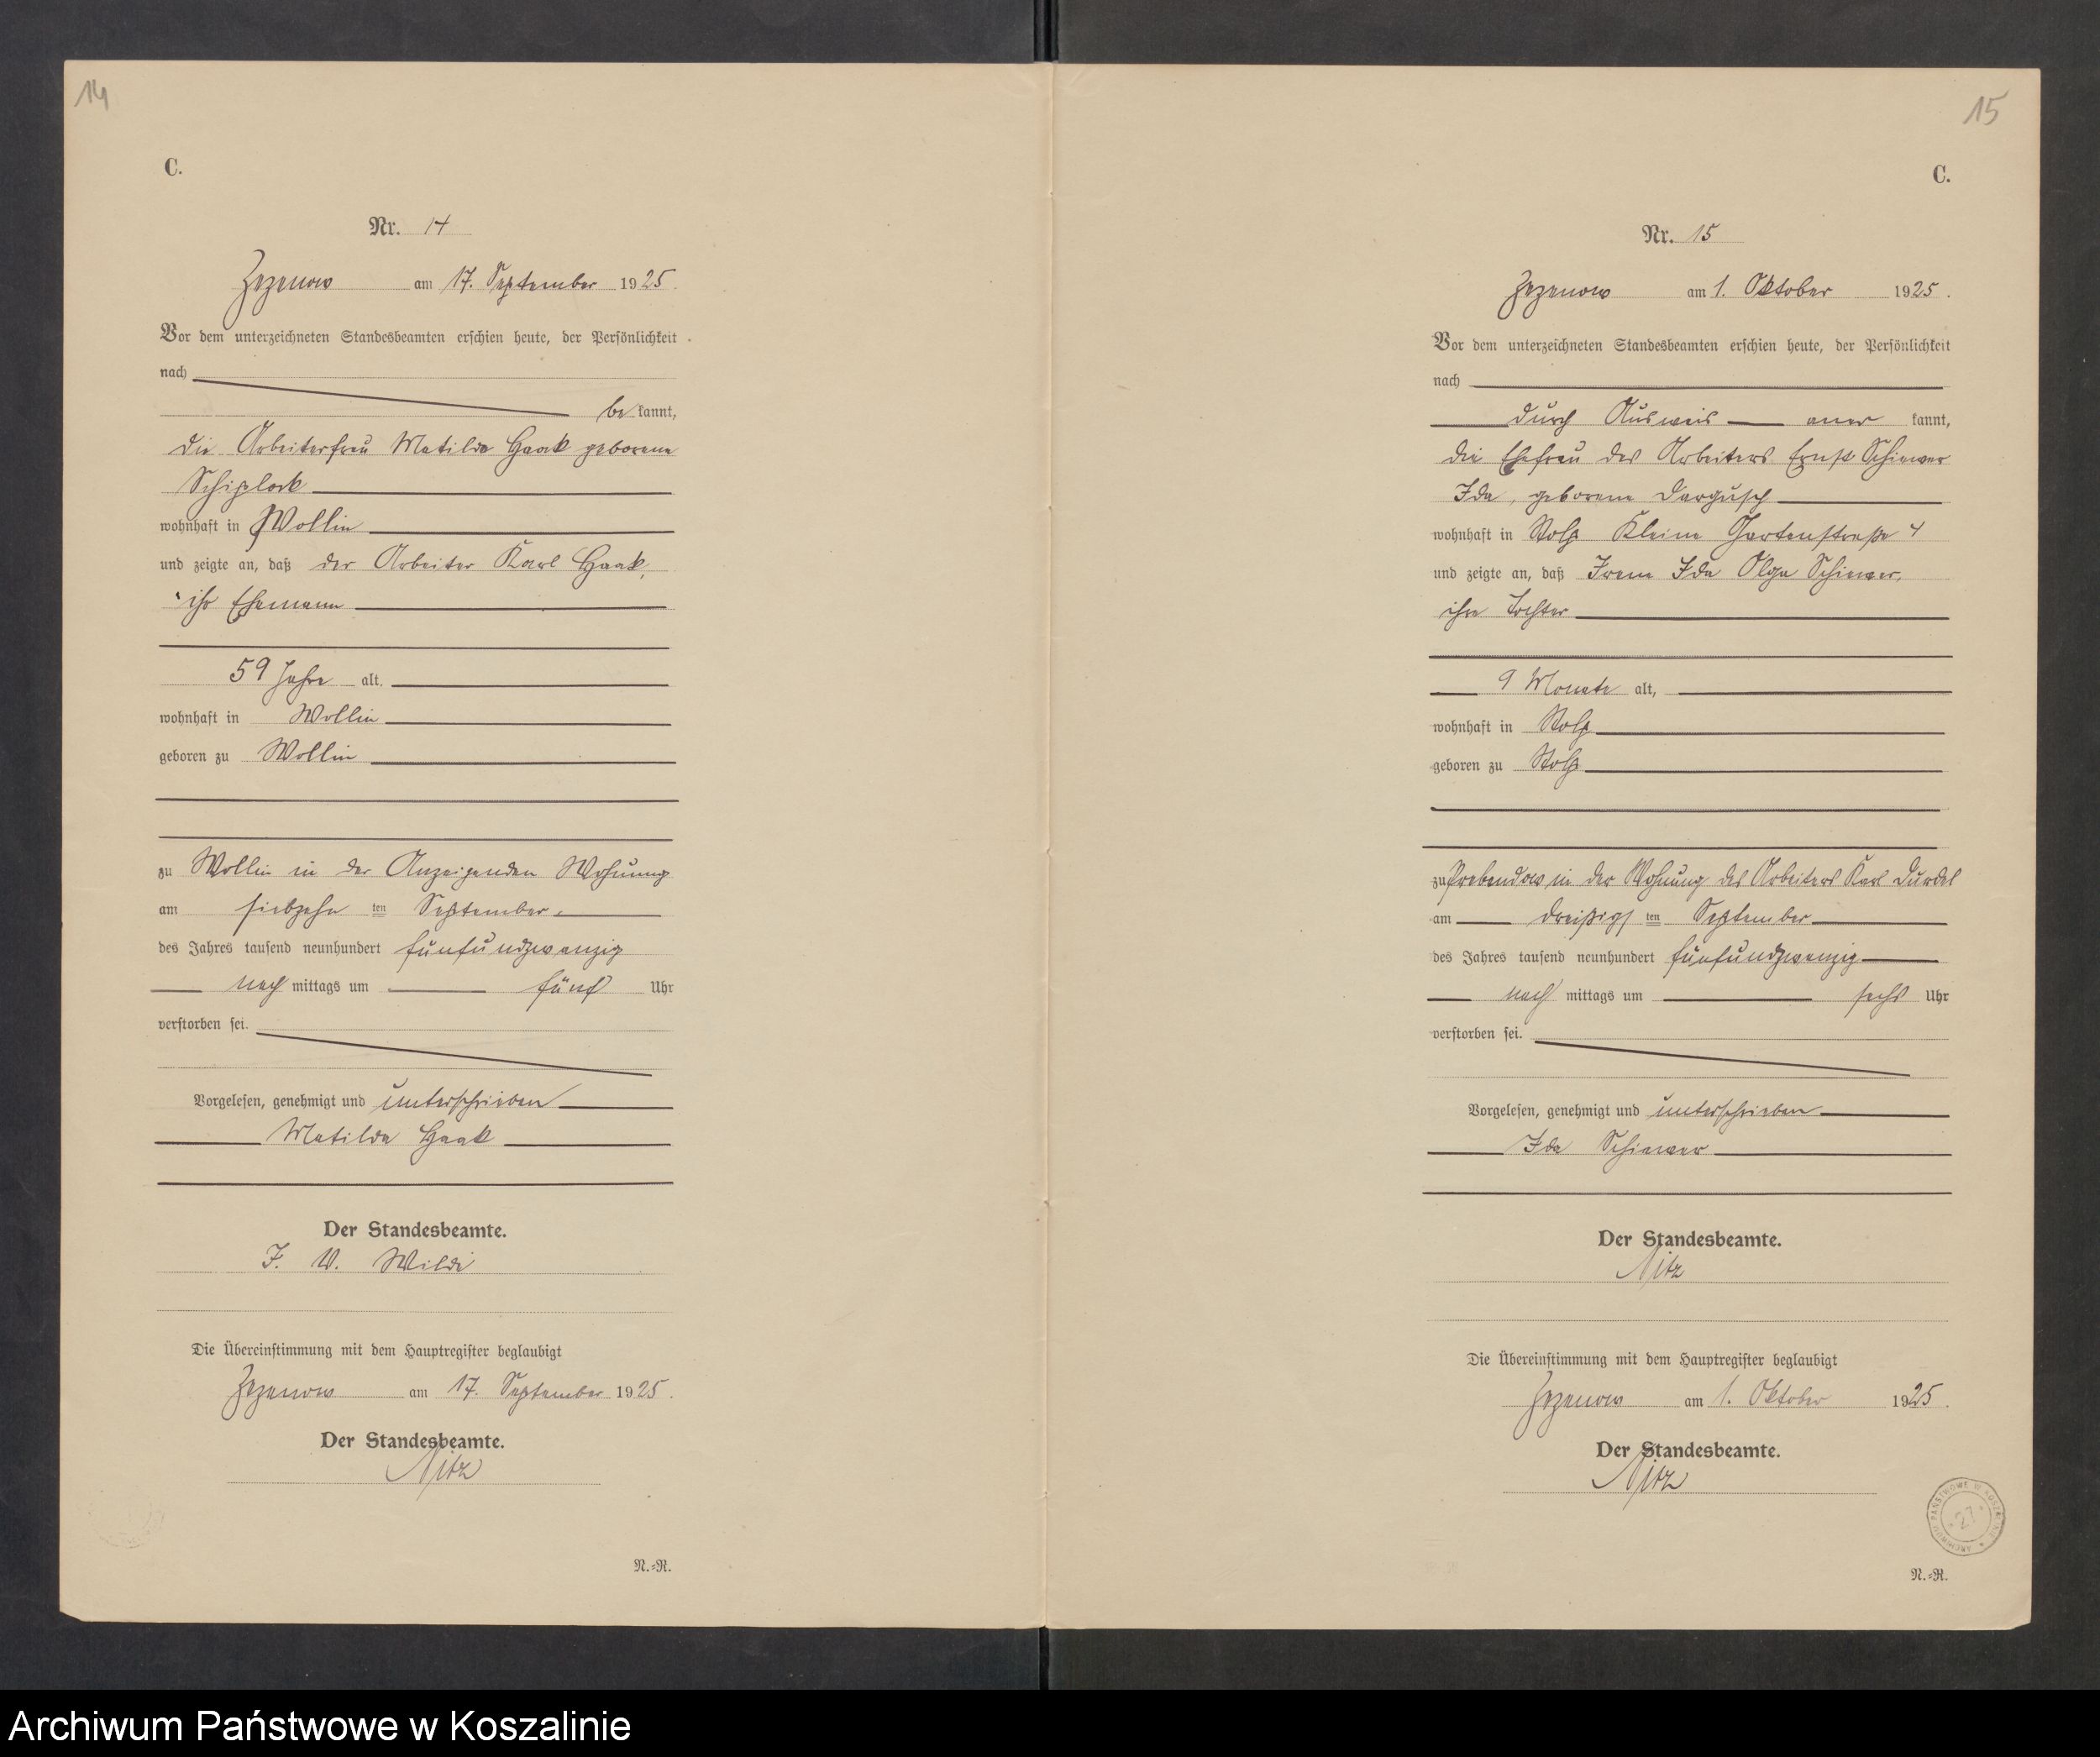 14
C.
Nr. 14
Zezenow am 17. September 1925.
Vor dem unterzeichneten Standesbeamten erschien heute, der Persönlichkeit
nach
bekannt,
die Arbeiterfrau Matilde Haak geborene
Schiplock
wohnhaft in Wollin
und zeigte an, daß der Arbeiter Karl Haak,
ihr Ehemann
59 Jahre alt.
wohnhaft in Wollin
geboren zu Wollin
zu Wollin in der Anzeigenden Wohnung
am siebzehn ten September
des Jahres tausend neunhundert fünfundzwanzig
nach mittags um fünf Uhr
verstorben sei.
Vorgelesen, genehmigt und unterschrieben
Matilde Haak
Der Standesbeamte.
I. V. Wilde
Die Übereinstimmung mit dem Hauptregister beglaubigt
Zezenow am 17. September 1925.
Der Standesbeamte.
Nitz
N.=R.
15
C.
Nr. 15
Zezenow am 1. Oktober 1925.
Vor dem unterzeichneten Standesbeamten erschien heute, der Persönlichkeit
nach
durch Ausweis aner kannt,
die Ehefrau des Arbeiters Ernst Schiewer
Ida, geborene Dargusch
wohnhaft in Stolp Kleine Gartenstraße 4
und zeigte an, daß Irene Ida Olga Schiewer,
ihre Tochter
9 Monate alt,
wohnhaft in Stolp
geboren zu Stolp
zu Prebendow in der Wohnung des Arbeiters Karl Durdel
am dreißigs ten September
des Jahres tausend neunhundert fünfundzwanzig
nach mittags um sechs Uhr
verstorben sei.
Vorgelesen, genehmigt und unterschrieben
Ida Schiewer
Der Standesbeamte.
Nitz
Die Übereinstimmung mit dem Hauptregister beglaubigt
Zezenow am 1. Oktober 1925.
Der Standesbeamte.
Nitz
ARCHIWUM PAŃSTWOWE W KOSZALINIE
27
N.=R.
Archiwum Państwowe w Koszalinie